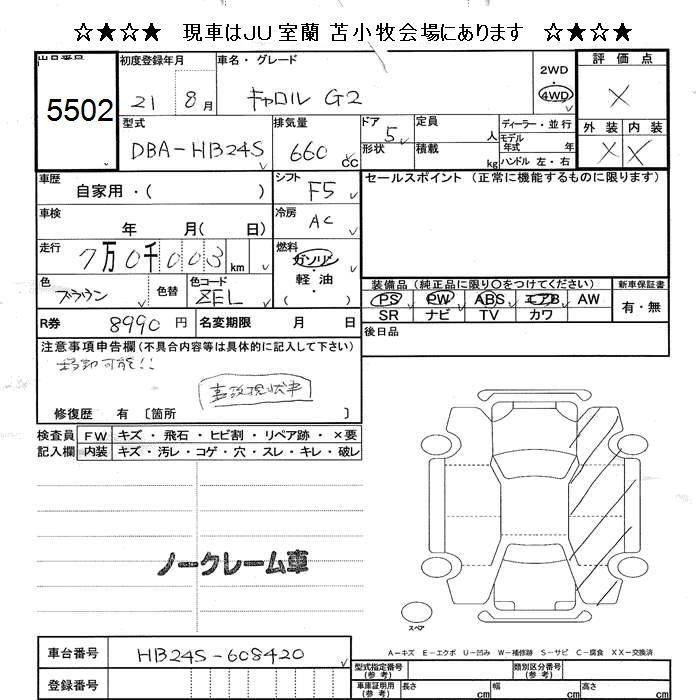 ☆★☆★　現車はJU室蘭 苫小牧会場にあります　☆★☆★
出品番号
5502
初度登録年月
21 8月
車名・グレード
キャロル G2
2WD
・
4WD
評価点
X
外装 内装
X X
型式
DBA-HB24S
排気量
660 cc
ドア 5
形状
定員 人
積載 kg
ディーラー・並行
モデル年式 年
ハンドル 左・右
車歴
自家用・( )
シフト F5
セールスポイント (正常に機能するものに限ります)
車検 年 月( 日)
冷房 AC
走行 7万0千003 km
燃料
ガソリン
・
軽油
( )
色 ブラウン
色替
色コード
ZEL
装備品 (純正品に限り○をつけてください)
PS PW ABS エアB AW
SR ナビ TV カワ
新車保証書
有・無
R券 8990 円
名変期限 月 日
後日品
注意事項申告欄 (不具合内容等は具体的に記入して下さい)
移動可能!!
事故現状車
修復歴 有 〔箇所 〕
検査員 FW キズ・飛石・ヒビ割・リペア跡・×要
記入欄 内装 キズ・汚レ・コゲ・穴・スレ・キレ・破レ
ノークレーム車
スペア
A－キズ E－エクボ U－凹み W－補修跡 S－サビ C－腐食 XX－交換済
車台番号 HB24S-608420
登録番号
型式指定番号 (参考)
類別区分番号 (参考)
車庫証明用 (参考)
長さ cm 幅 cm 高さ cm